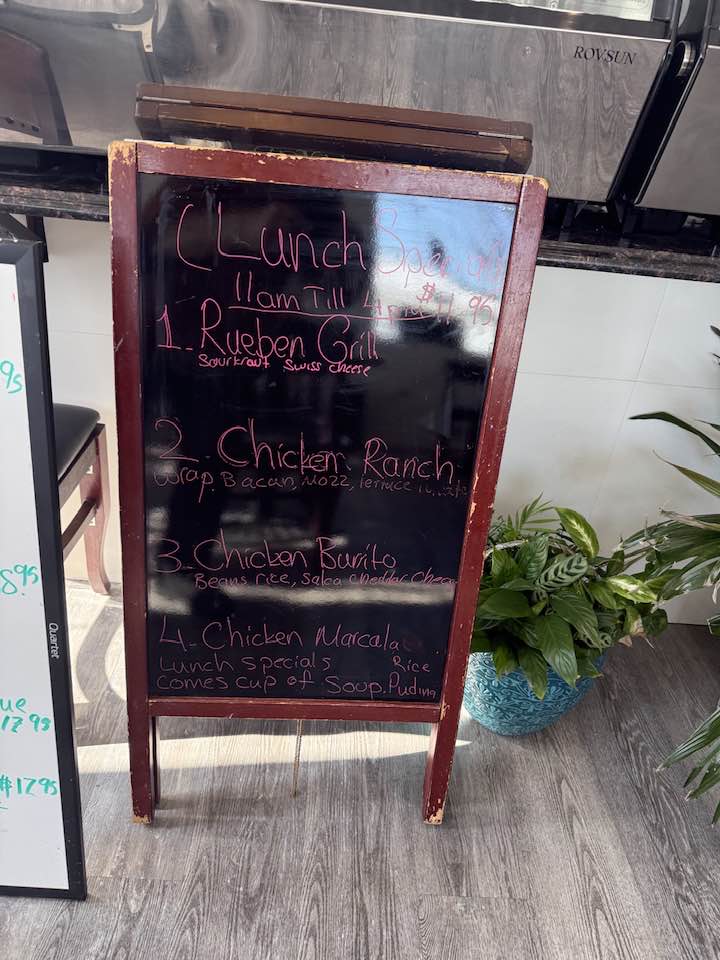 ROVSUN
(Lunch Specials
11am Till 4pm $11.95
1. Rueben Grill
Sourkraut Swiss cheese
2. Chicken Ranch
Wrap. Bacan, Mozz,
3. Chicken Burito
Beans rice, Salca cheddar cheese
4. Chicken Marcala
Lunch specials Rice
comes cup of Soup. Puding
9s
8.95
Quartet
ue
17 95
$17.95